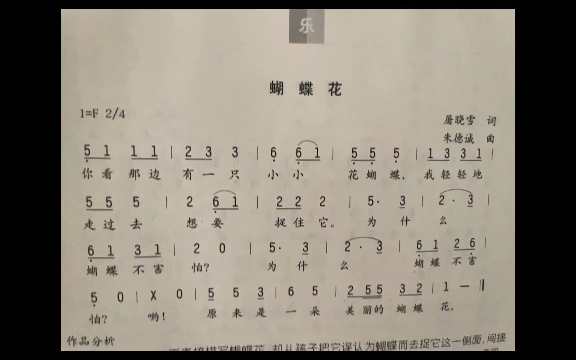 乐
蝴 蝶 花
1=F 2/4
屠晓雪 词
朱德诚 曲
5 1 1 1 | 2 3 3 | 6 6 1 | 5 5 5 | 1 3 3 1 |
你 看 那 边 有 一 只 小 小 花 蝴 蝶, 我 轻 轻 地
5 5 5 | 2 6 1 | 5· 3 | 5 | 2· 3 |
走 过 去 想 要 捉 住 它。 为 什 么
6 1 3 1 | 2 0 | 5· 3 | 2· 3 | 6 1 2 6 |
蝴 蝶 不 害 怕? 为 什 么 蝴 蝶 不 害
5 0 | X 0 | 5 5 3 | 6 5 | 2 5 5 3 2 | 1 — ‖
怕? 哟! 原 来 是 一 朵 美 丽 的 蝴 蝶 花。
作品分析
描写蝴蝶花,却从孩子把它误认为蝴蝶而去捉它这一侧面,间接